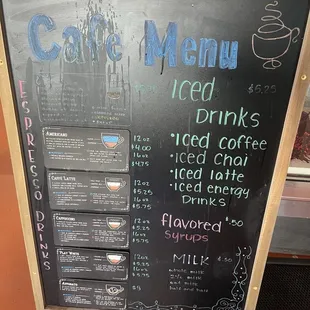 Cafe Menu
ESPRESSO DRINKS
Americano
12 oz
$4.00
16 oz
$4.75
Caffe Latte
12 oz
$5.25
16 oz
$5.75
Cappuccino
12 oz
$5.25
16 oz
$5.75
Flat White
12 oz
$5.25
16 oz
$5.75
Iced $5.25
Drinks
•Iced coffee
•Iced chai
•Iced latte
•Iced energy
Drinks
flavored $.50
syrups
MILK
whole milk
2% milk
oat milk
half and half